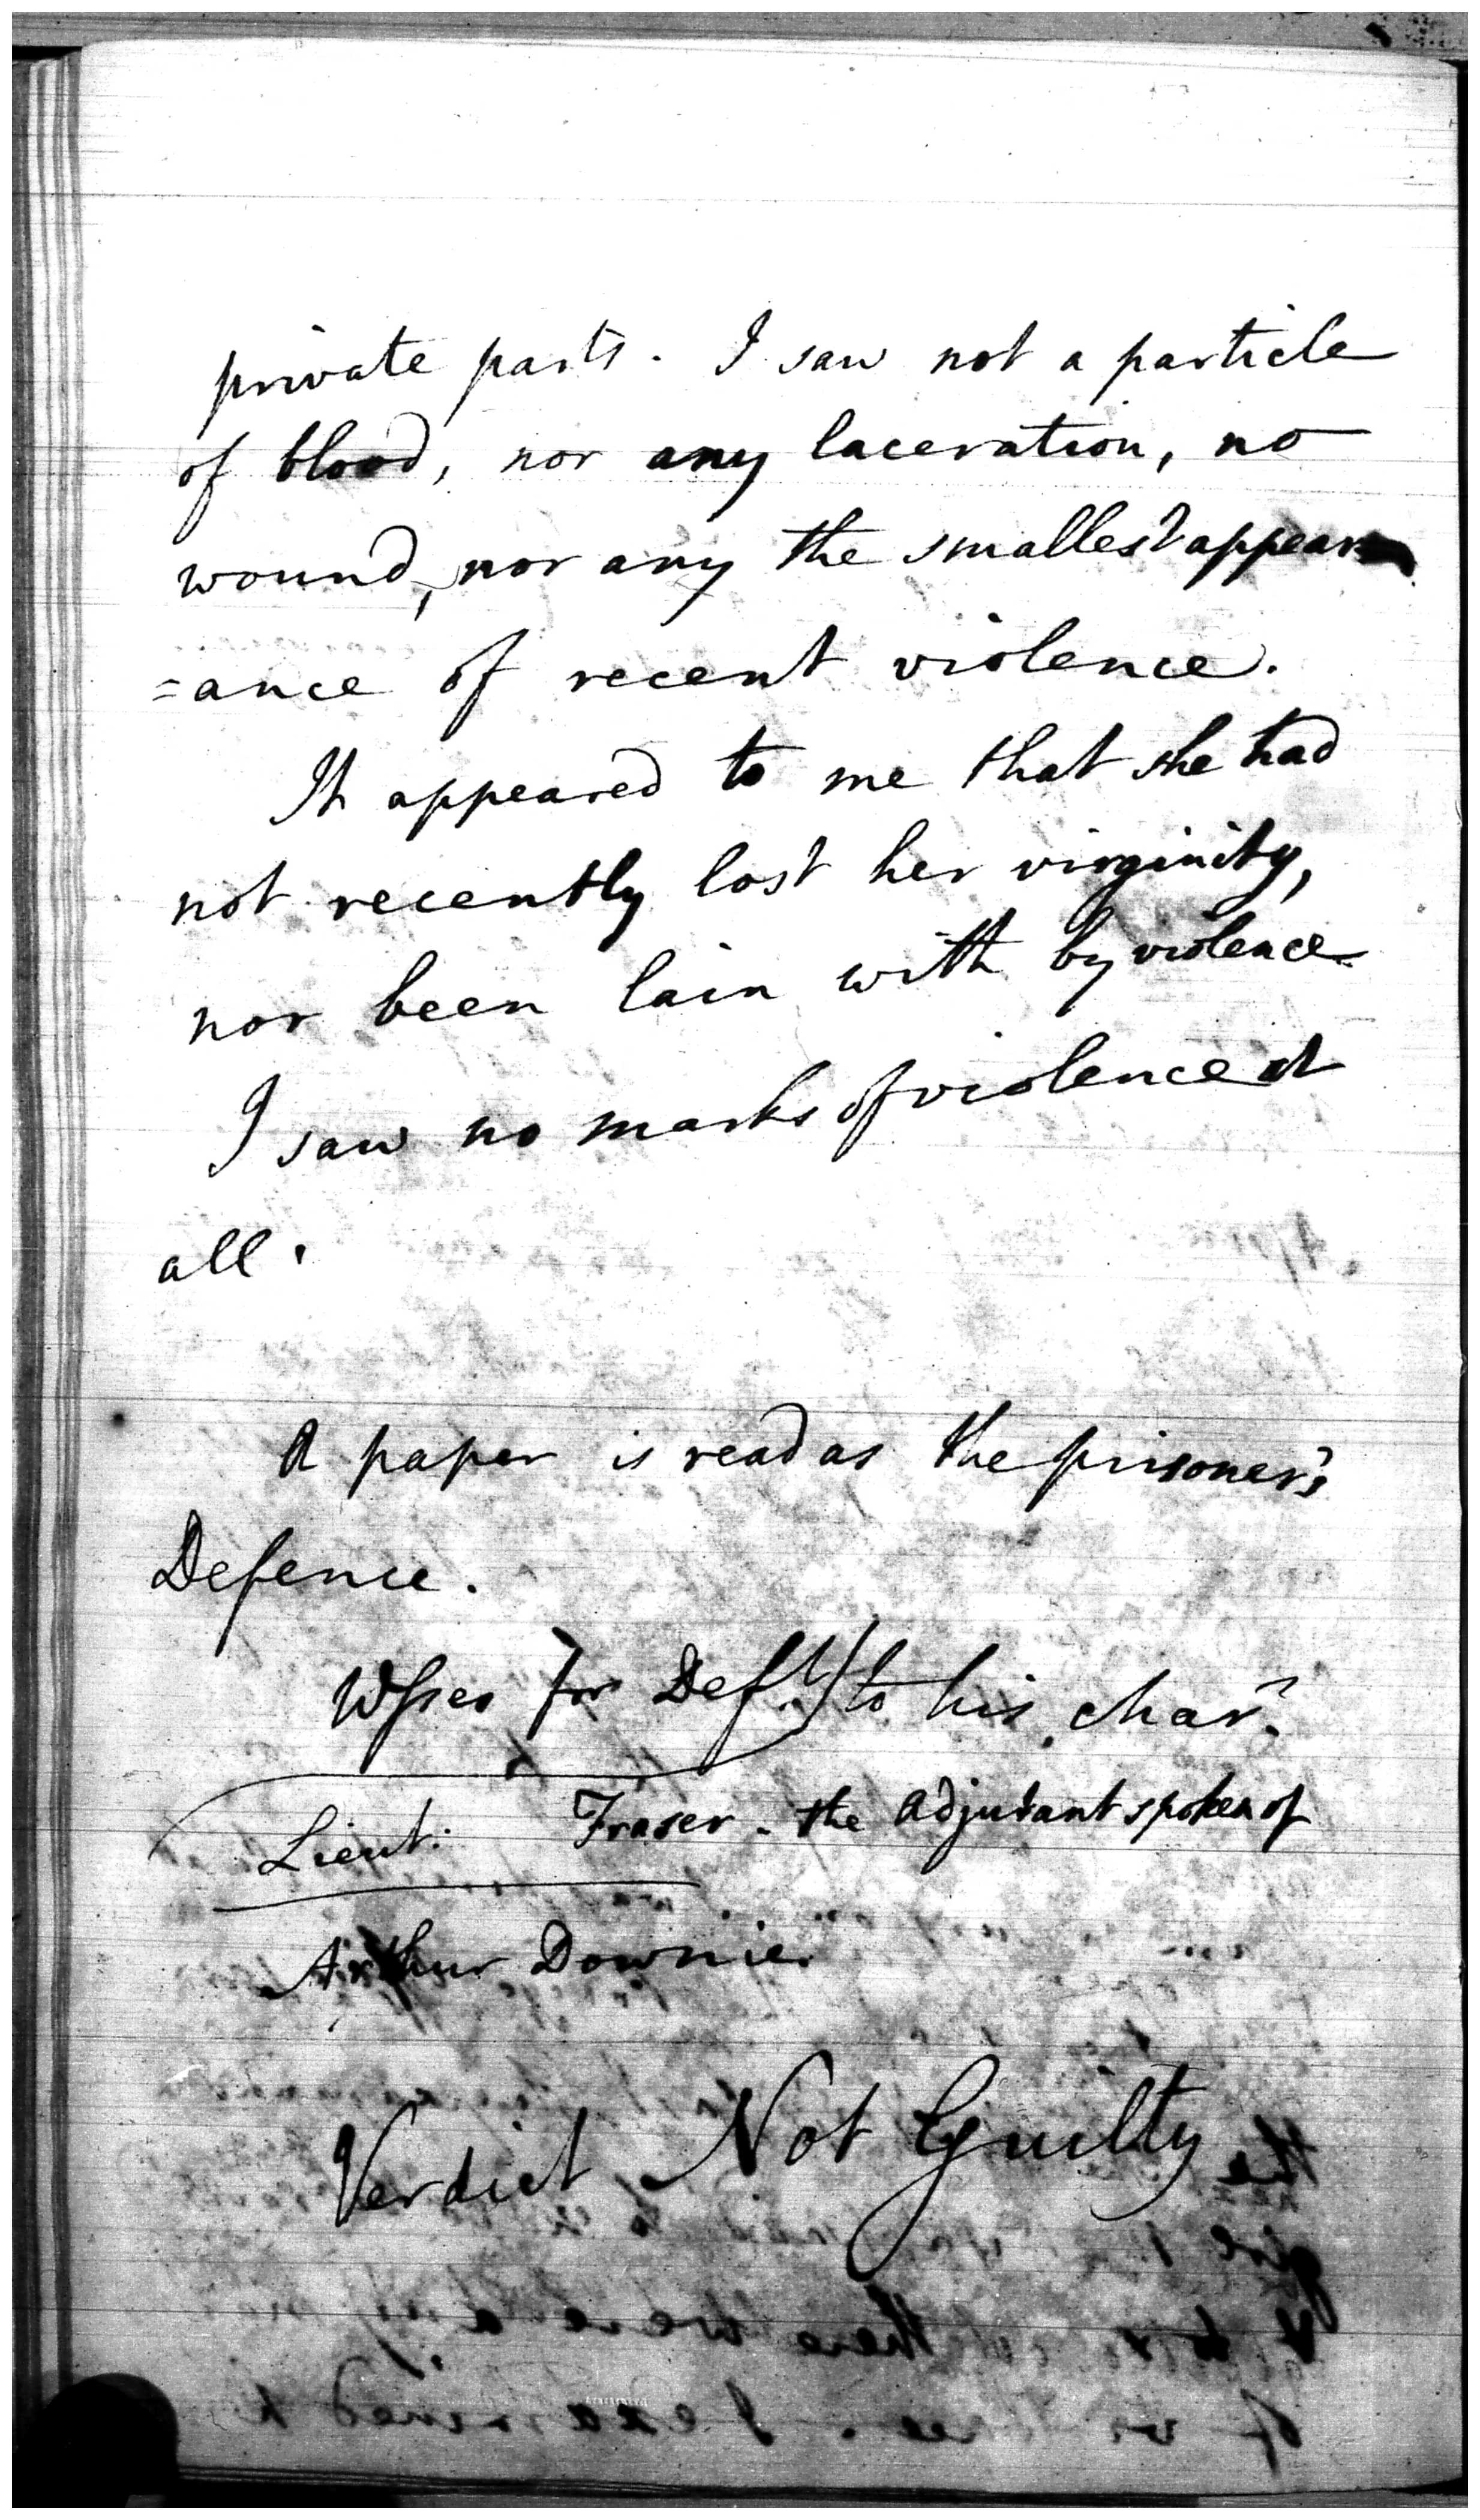 private parts. I saw not a particle
of blood, nor any laceration, no
wound, nor any the smallest appear
=ance of recent violence.
It appeared to me that she had
not recently lost her virginity,
nor been lain with by violence.
I saw no marks of violence at
all.
A paper is read as the prisoner's
Defence.
Wsses for Deft. to his char.
Lieut: Fraser - the Adjutant spoken of
Arthur Downie.
Verdict Not Guilty